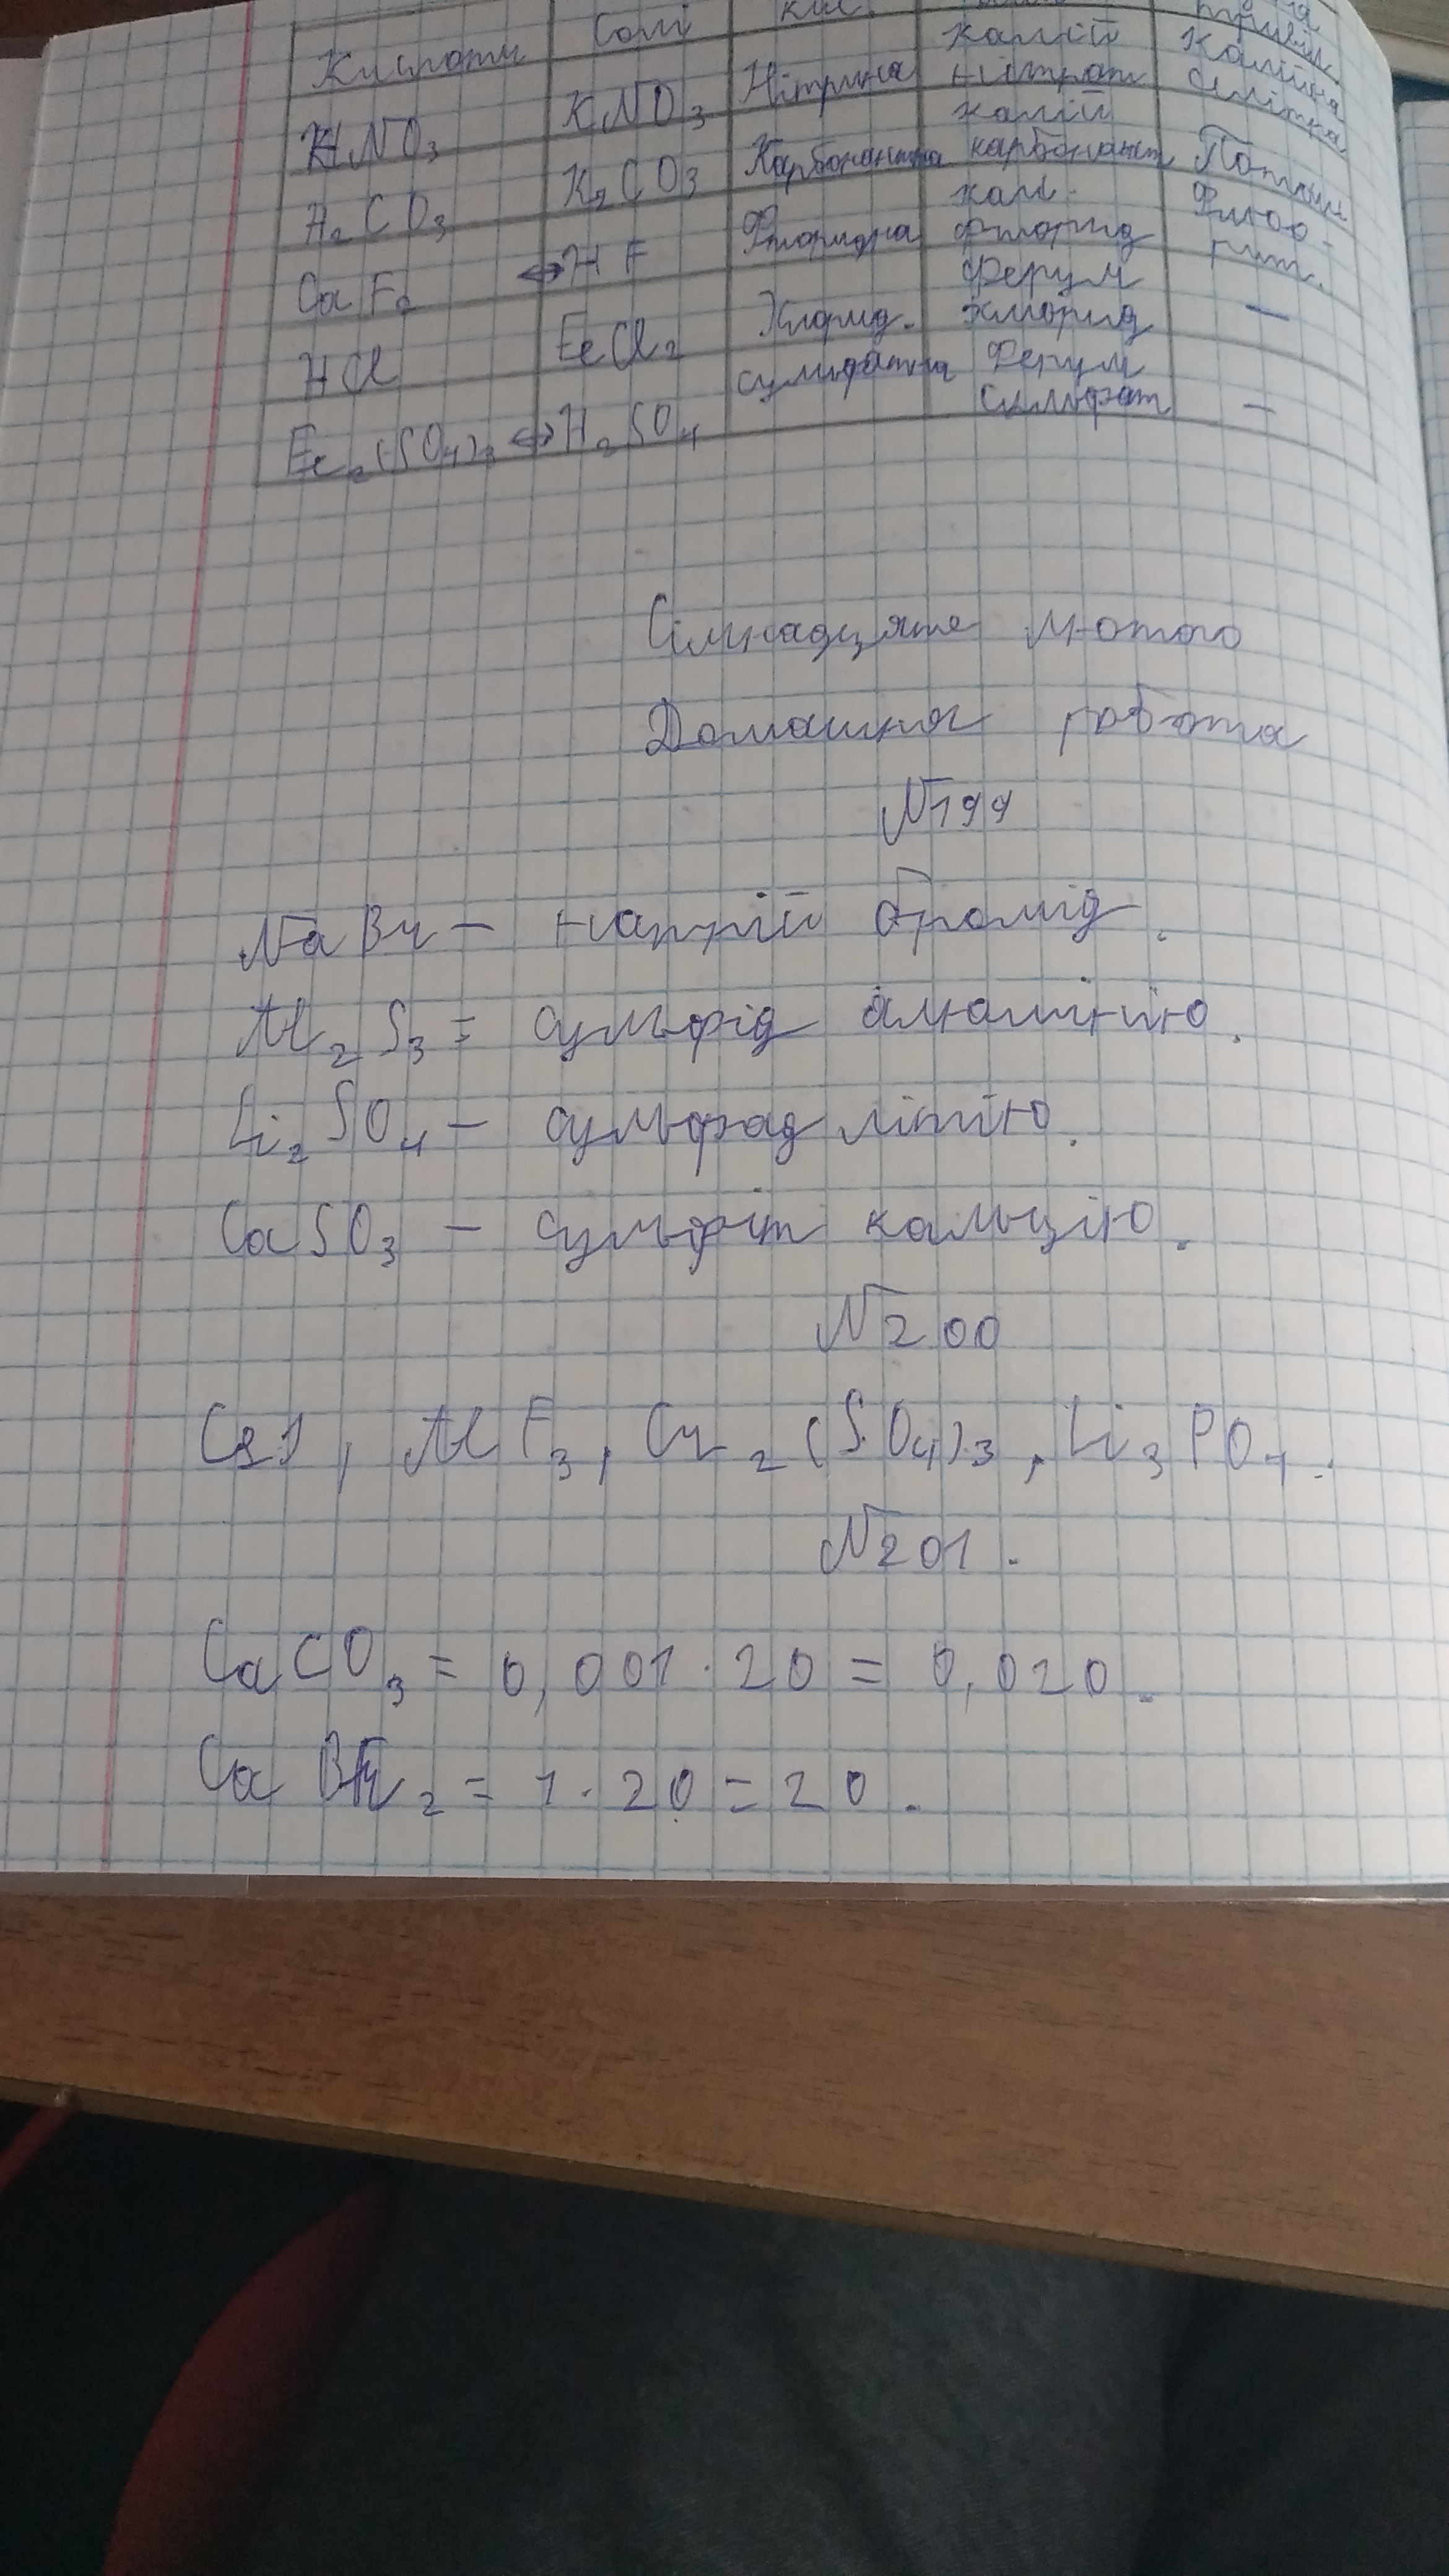 Кислоти Солі кис.
HNO₃ KNO₃ Нітратна калій нітрат Калійна селітра
H₂CO₃ K₂CO₃ Карбонантна калій карбонант Поташ
CaF₂ ↔ HF Фторидна калі. фторид Флюо-рит.
HCl FeCl₂ Хлорид. Ферум хлорид —
Fe₂(SO₄)₃ ↔ H₂SO₄ сульфатна Ферум Сульфат —
Сімнадцяте лютого
Домашня робота
N199
NaBr — натрій бромід.
Al₂S₃ = сульфід алюмінію.
Li₂SO₄ — сульфад літію.
CaSO₃ — сульфіт кальцію.
N200
CsI, AlF₃, Cr₂(SO₄)₃, Li₃PO₄.
N201.
CaCO₃ = 0,001 · 20 = 0,020.
Ca Br₂ = 1 · 20 = 20.